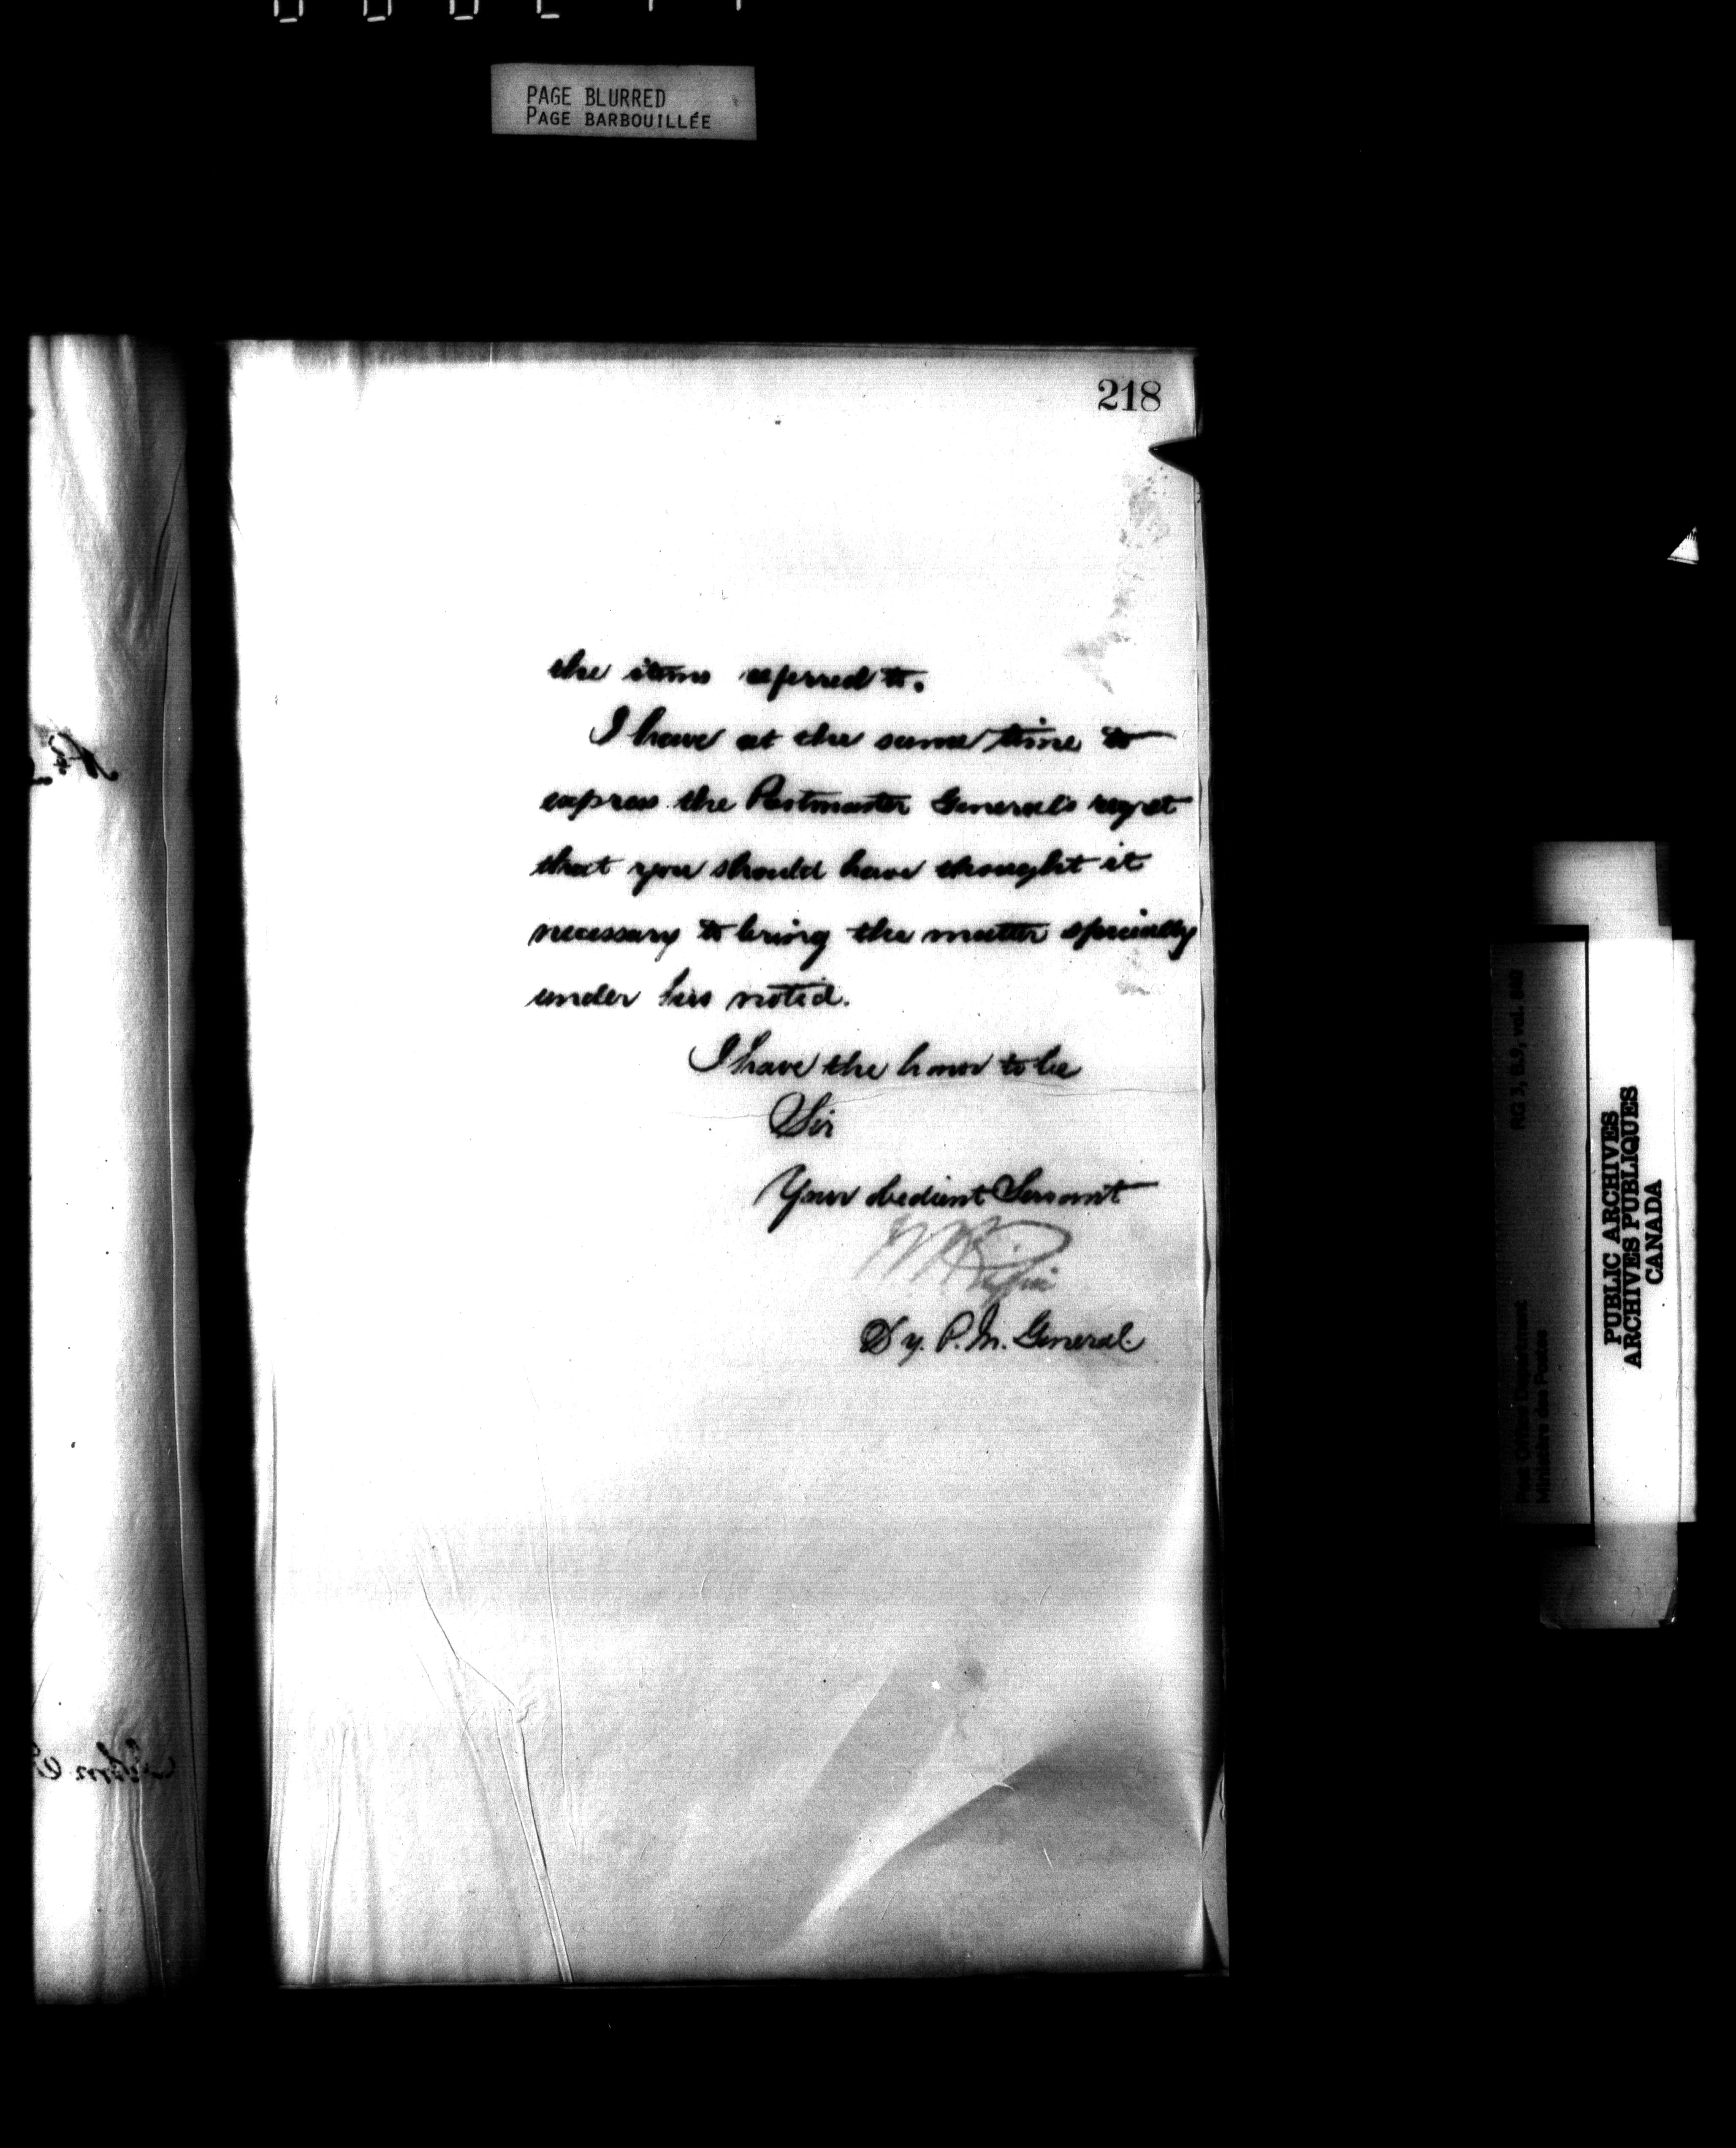 PAGE BLURRED
PAGE BARBOUILLÉE
218
the items referred to.
I have at the same time to
express the Postmaster General's regret
that you should have thought it
necessary to bring the matter specially
under his notice.
I have the honor to be
Sir
Your obedient Servant
Dy. P. M. General.
RG 3, D.9, vol.
Post Office Department
Ministère des Postes
PUBLIC ARCHIVES
ARCHIVES PUBLIQUES
CANADA